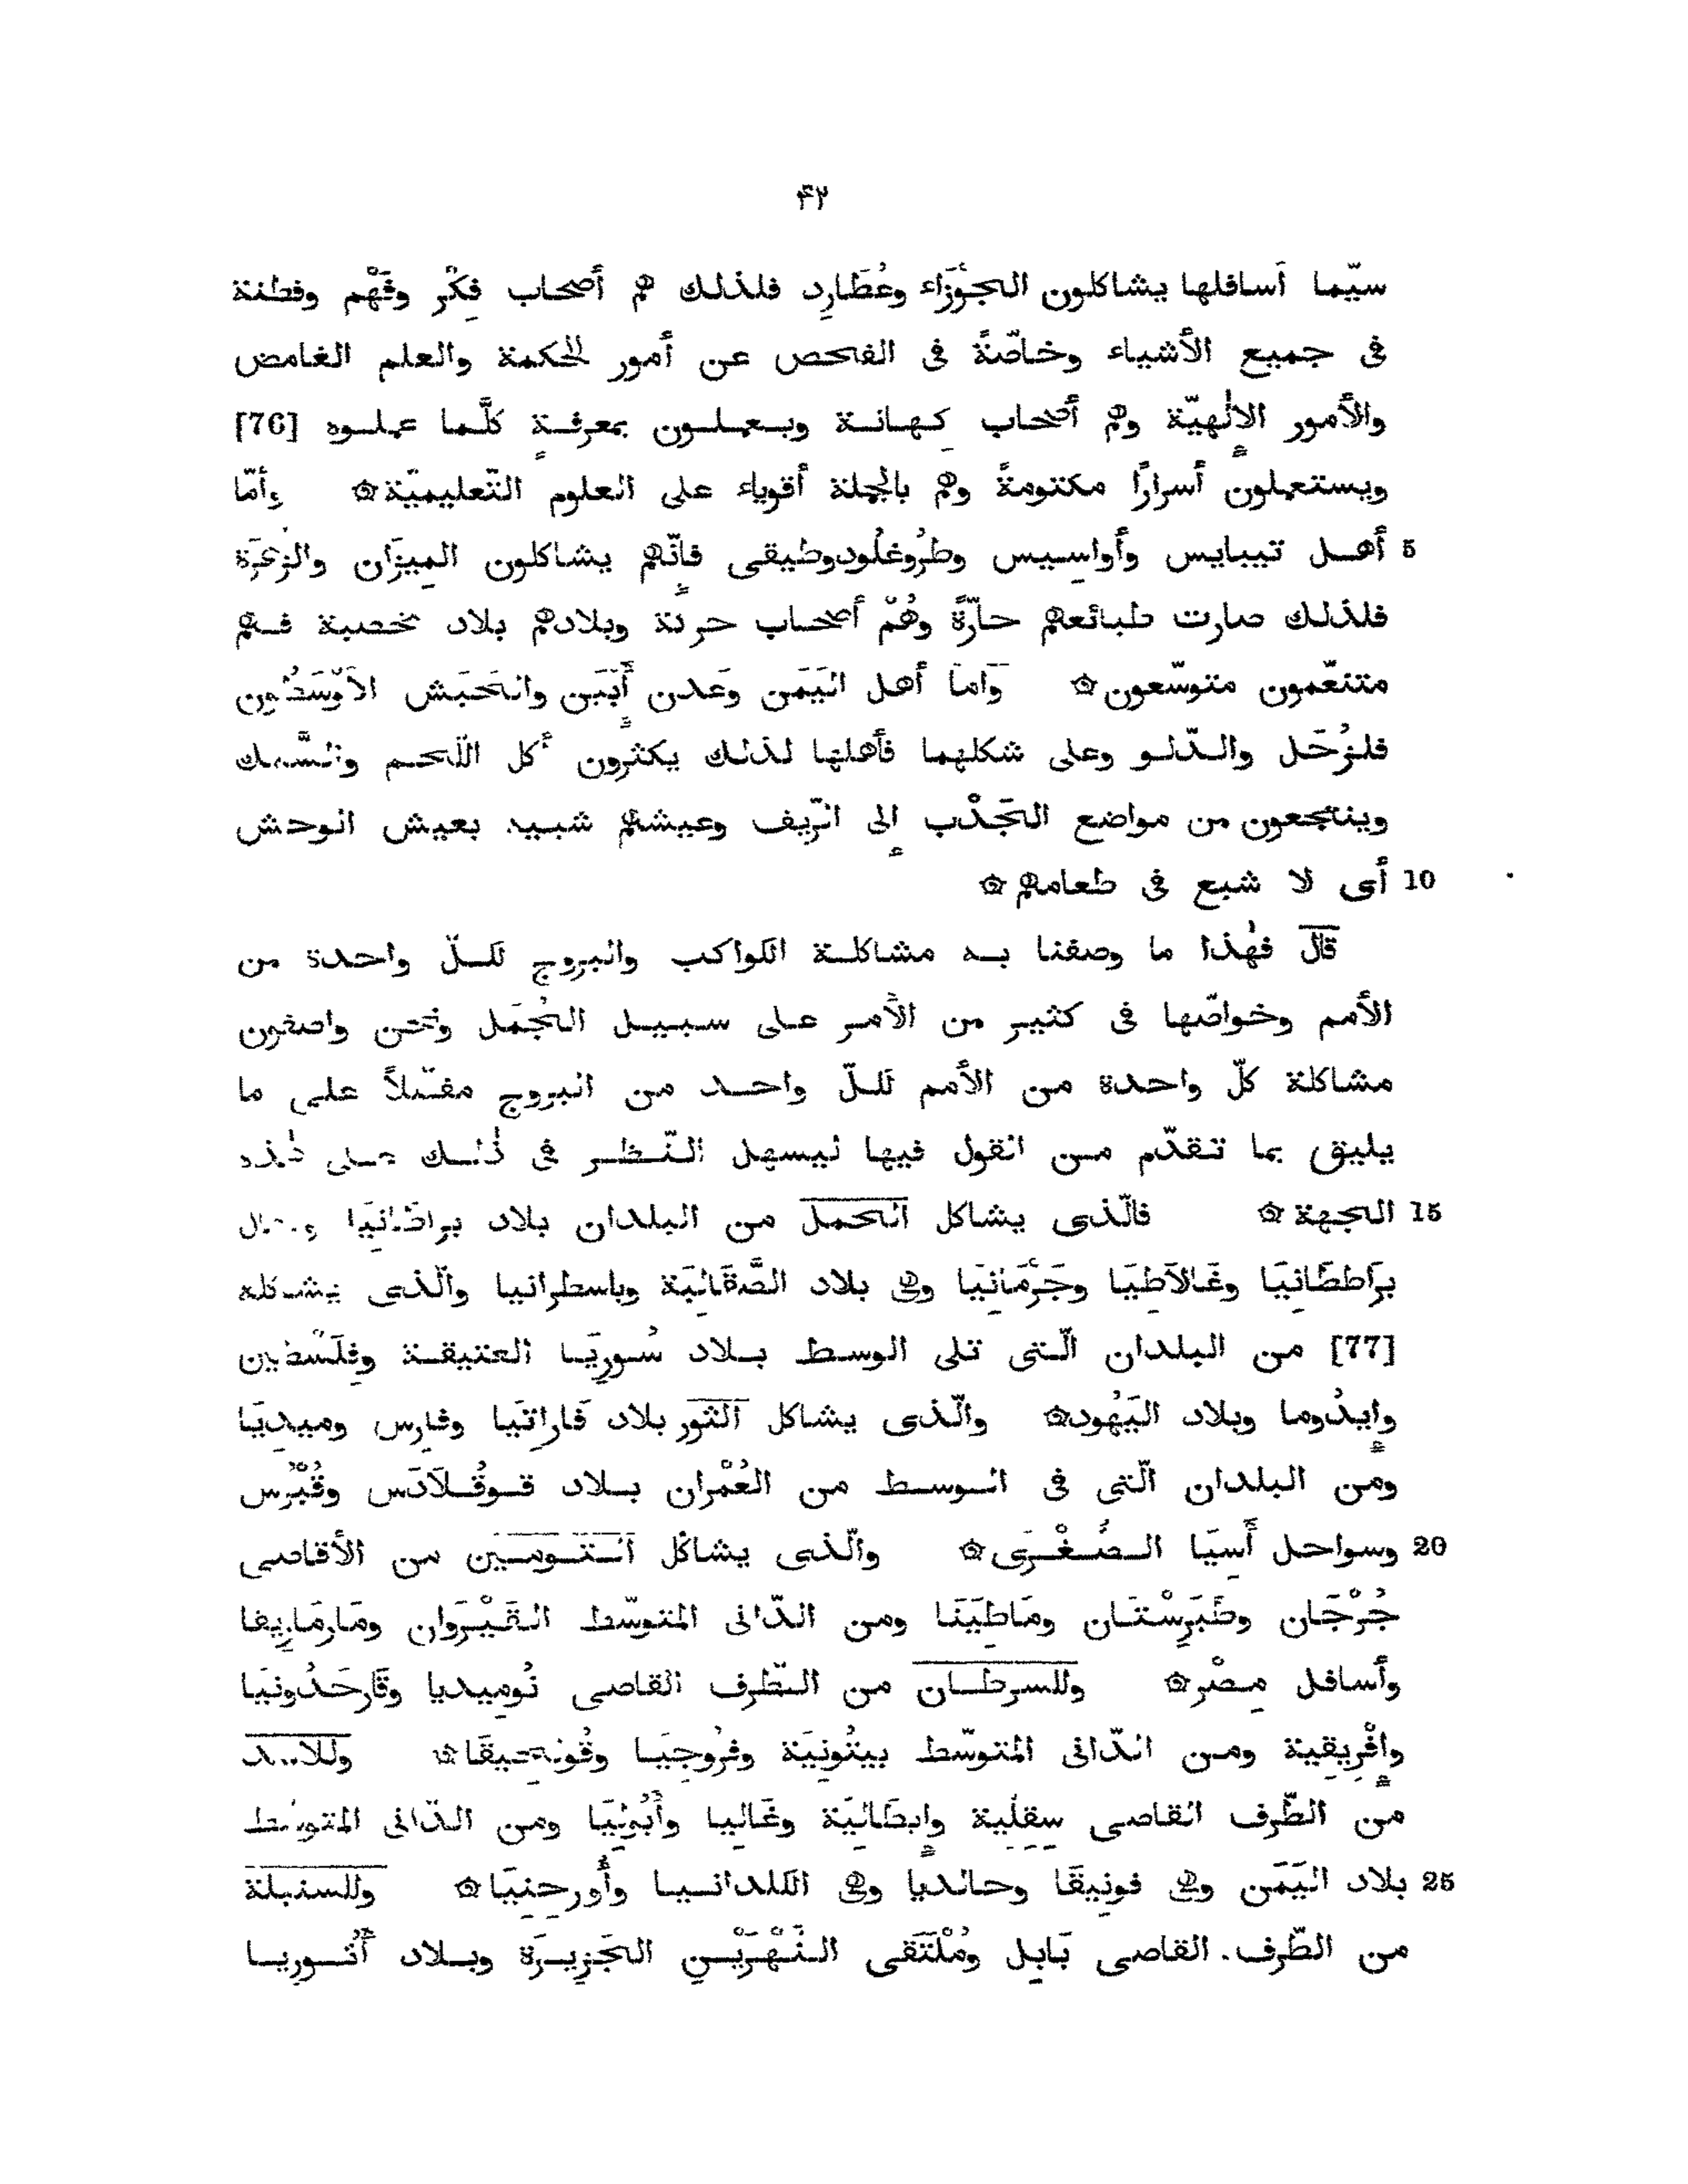 ۴۲
سيّما أسافلها يشاكلون الجَوْزَاء وعُطَارِد فلذلك هم أصحاب فِكْر وفَهْم وفطنة
فى جميع الأشياء وخاصّةً فى الفحص عن أمور الحكمة والعلم الغامض
والأمور الإلٰهيّة وهم أصحاب كِهانة ويعملون بمعرفةٍ كلَّما عملوه [76]
ويستعملون أسرارًا مكتومةً وهم بالجملة أقوياء على العلوم التّعليميّة ۞ وأمّا
5 أهل تيبايس وأواسِيس وطُرُوغلُودوطيقى فإنّهم يشاكلون المِيزَان والزُّهَرَة
فلذلك صارت طبائعهم حارّةً وهُمْ أصحاب حركة وبلادهم بلاد مخصبة فهم
متنعّمون متوسّعون ۞ وَأما أهل اليَمَن وَعدن أَبْيَن والحَبَش الأَوْسَطُون
فلزُحَل والدّلو وعلى شكلهما فأهلها لذلك يكثرون أكل اللّحم والسَّمك
وينتجعون من مواضع الجَدْب إلى الرّيف وعيشهم شبيه بعيش الوحش
10 أى لا شبع فى طعامهم ۞
قال فهٰذا ما وصفنا به مشاكلة الكواكب والبروج لكلّ واحدة من
الأمم وخواصّها فى كثير من الأمر على سبيل الجُمَل ونحن واصفون
مشاكلة كلّ واحدة من الأمم لكلّ واحد من البروج مفصّلاً على ما
يليق بما تقدّم من القول فيها ليسهل النّظر فى ذٰلك على هٰذه
15 الجهة ۞ فالّذى يشاكل الحمل من البلدان بلاد براطَانِيَا
بَراططَانِيَا وغَالاَطِيَا وجَرْمَانِيَا وهى بلاد الصَّقَالِبَة وباسطرانيا والّذى يشاكله
[77] من البلدان الّتى تلى الوسط بلاد سُورِيَا العتيقة وفِلَسْطِين
وإِيدُوما وبلاد اليَهُود ۞ والّذى يشاكل الثور بلاد فَاراتِيَا وفَارِس ومِيدِيَا
ومن البلدان الّتى فى الوسط من العُمْران بلاد قوقُلاَدَس وقُبْرُس
20 وسواحل أَسِيَا الصُّغْرَى ۞ والّذى يشاكل التومين من الأقاصى
جُرْجَان وطَبَرِسْتَان ومَاطِيَنَا ومن الدّانى المتوسّط القَيْرَوان ومَارمَارِيقا
وأسافل مِصْر ۞ وللسرطان من الطّرف القاصى نُومِيديا وقَارخَدُونيَا
وإِفْرِيقِية ومن الدّانى المتوسّط بيثُونِيَة وفرُوجِيَا ۞ وللأسد
من الطّرف القاصى سِقِلِّية وإِيطَالِيَة وغَالِيا وأَبُولِيَا ومن الدّانى المتوسّط
25 بلاد اليَمَن وهى فونِيقَا وحالديا وهى الكلدانيا وأُورحِنِيَا ۞ وللسنبلة
من الطّرف القاصى بَابِل ومُلْتَقى النَّهْرَيْنِ الجَزِيرَة وبلاد أَثُورِيا